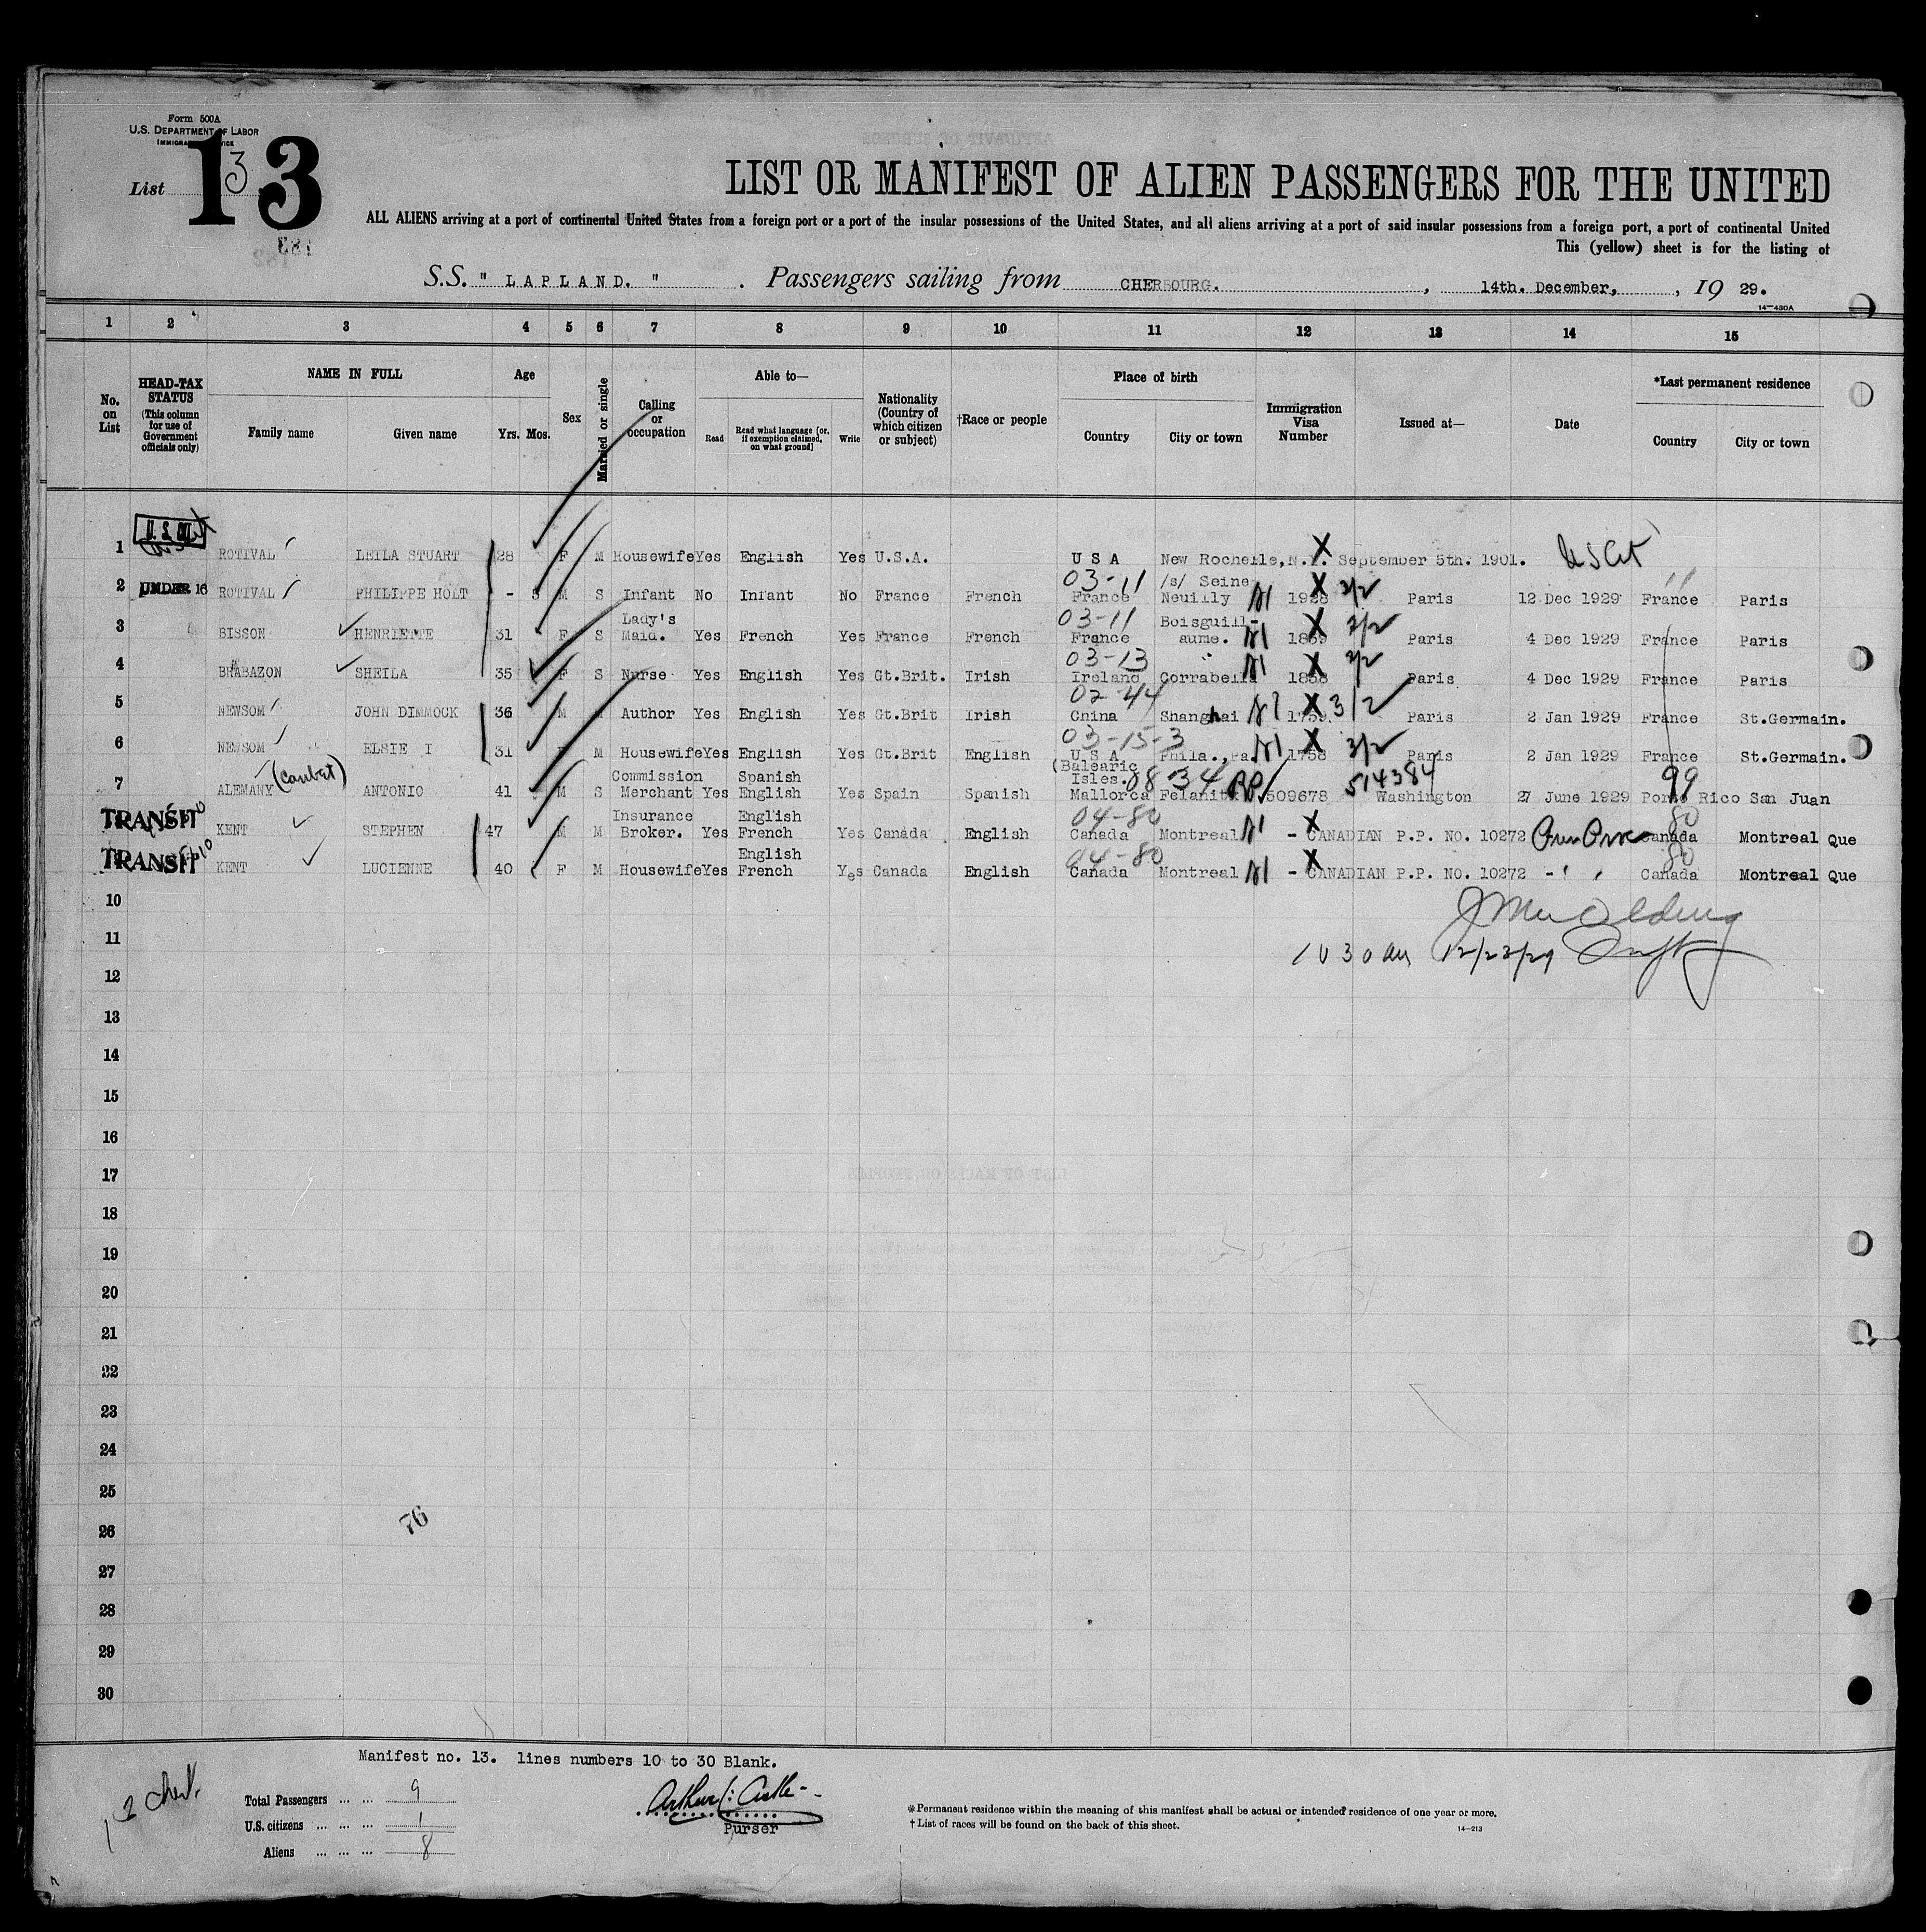 Form 500A
U.S. DEPARTMENT OF LABOR
List 13
3
LIST OR MANIFEST OF ALIEN PASSENGERS FOR THE UNITED
ALL ALIENS arriving at a port of continental United States from a foreign port or a port of the insular possessions of the United States, and all aliens arriving at a port of said insular possessions from a foreign port, a port of continental United
This (yellow) sheet is for the listing of
S.S. " LAPLAND. " . Passengers sailing from CHERBOURG. , 14th. December, , 19 29.
14-430A
1 2 3 4 5 6 7 8 9 10 11 12 13 14 15
No. on List
HEAD-TAX STATUS (This column for use of Government officials only)
NAME IN FULL
Family name Given name
Age
Yrs. Mos.
Sex
Married or single
Calling or occupation
Able to—
Read Read what language [or, if exemption claimed, on what ground] Write
Nationality (Country of which citizen or subject)
†Race or people
Place of birth
Country City or town
Immigration Visa Number
Issued at—
Date
*Last permanent residence
Country City or town
1 ROTIVAL LEILA STUART 28 F M Housewife Yes English Yes U.S.A. U S A New Rochelle, N.Y. X September 5th. 1901. US Cit
03-11 /s/ Seine
2 UNDER 16 ROTIVAL PHILIPPE HOLT - M S Infant No Infant No France French France Neuilly 1928 X 3/2 Paris 12 Dec 1929 France Paris
Lady's 03-11 Boisguill-
3 BISSON HENRIETTE 31 F S Maid. Yes French Yes France French France aume. 1869 X 3/2 Paris 4 Dec 1929 France Paris
03-13
4 BRABAZON SHEILA 35 F S Nurse Yes English Yes Gt.Brit. Irish Ireland Corrabella 1868 X 3/2 Paris 4 Dec 1929 France Paris
02-44
5 NEWSOM JOHN DIMMOCK 36 M M Author Yes English Yes Gt.Brit Irish China Shanghai 1759 X 3/2 Paris 2 Jan 1929 France St.Germain.
03-15-3
6 NEWSOM ELSIE I 31 F M Housewife Yes English Yes Gt.Brit English U S A Phila., Pa. 1758 X 3/2 Paris 2 Jan 1929 France St.Germain.
(Balearic
Commission Spanish Isles. 08-34 RP 514384 99
7 ALEMANY ANTONIO 41 M S Merchant Yes English Yes Spain Spanish Mallorca Felanitx 509678 Washington 27 June 1929 Porto Rico San Juan
Insurance English 04-80 80
TRANSIT KENT STEPHEN 47 M M Broker. Yes French Yes Canada English Canada Montreal - X CANADIAN P.P. NO. 10272 Canada Montreal Que
English 04-80 80
TRANSIT KENT LUCIENNE 40 F M Housewife Yes French Yes Canada English Canada Montreal - X CANADIAN P.P. NO. 10272 - Canada Montreal Que
10
11
1030 am 12/23/29
12
13
14
15
16
17
18
19
20
21
22
23
24
25
26
76
27
28
29
30
Manifest no. 13. lines numbers 10 to 30 Blank.
Total Passengers ... ... 9
U.S. citizens ... ... ... 1
Aliens ... ... ... 8
Purser
*Permanent residence within the meaning of this manifest shall be actual or intended residence of one year or more.
† List of races will be found on the back of this sheet.
14-213